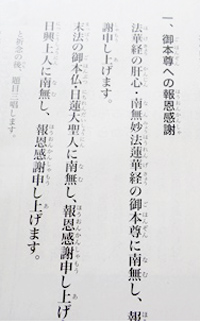 一、御本尊への報恩感謝
法華経の肝心・南無妙法蓮華経の御本尊に南無し、報
謝申し上げます。
末法の御本仏・日蓮大聖人に南無し、報恩感謝申し上げ
日興上人に南無し、報恩感謝申し上げます。
と祈念の後、題目三唱します。